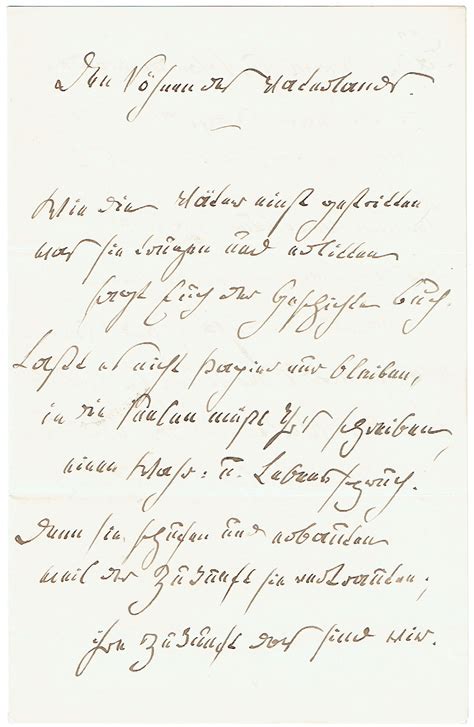 Den Söhnen des Vaterlandes.
Wie die Väter einst gestritten,
was sie trugen und erlitten
sagt Euch der Geschichte Buch.
Laßt es nicht Papier nur bleiben,
in die Seelen müßt Ihr's schreiben,
einen Wahr- u. Lebensspruch.
Denn sie schufen und erbauten
weil der Zukunft sie vertrauten;
ihre Zukunft das sind wir.